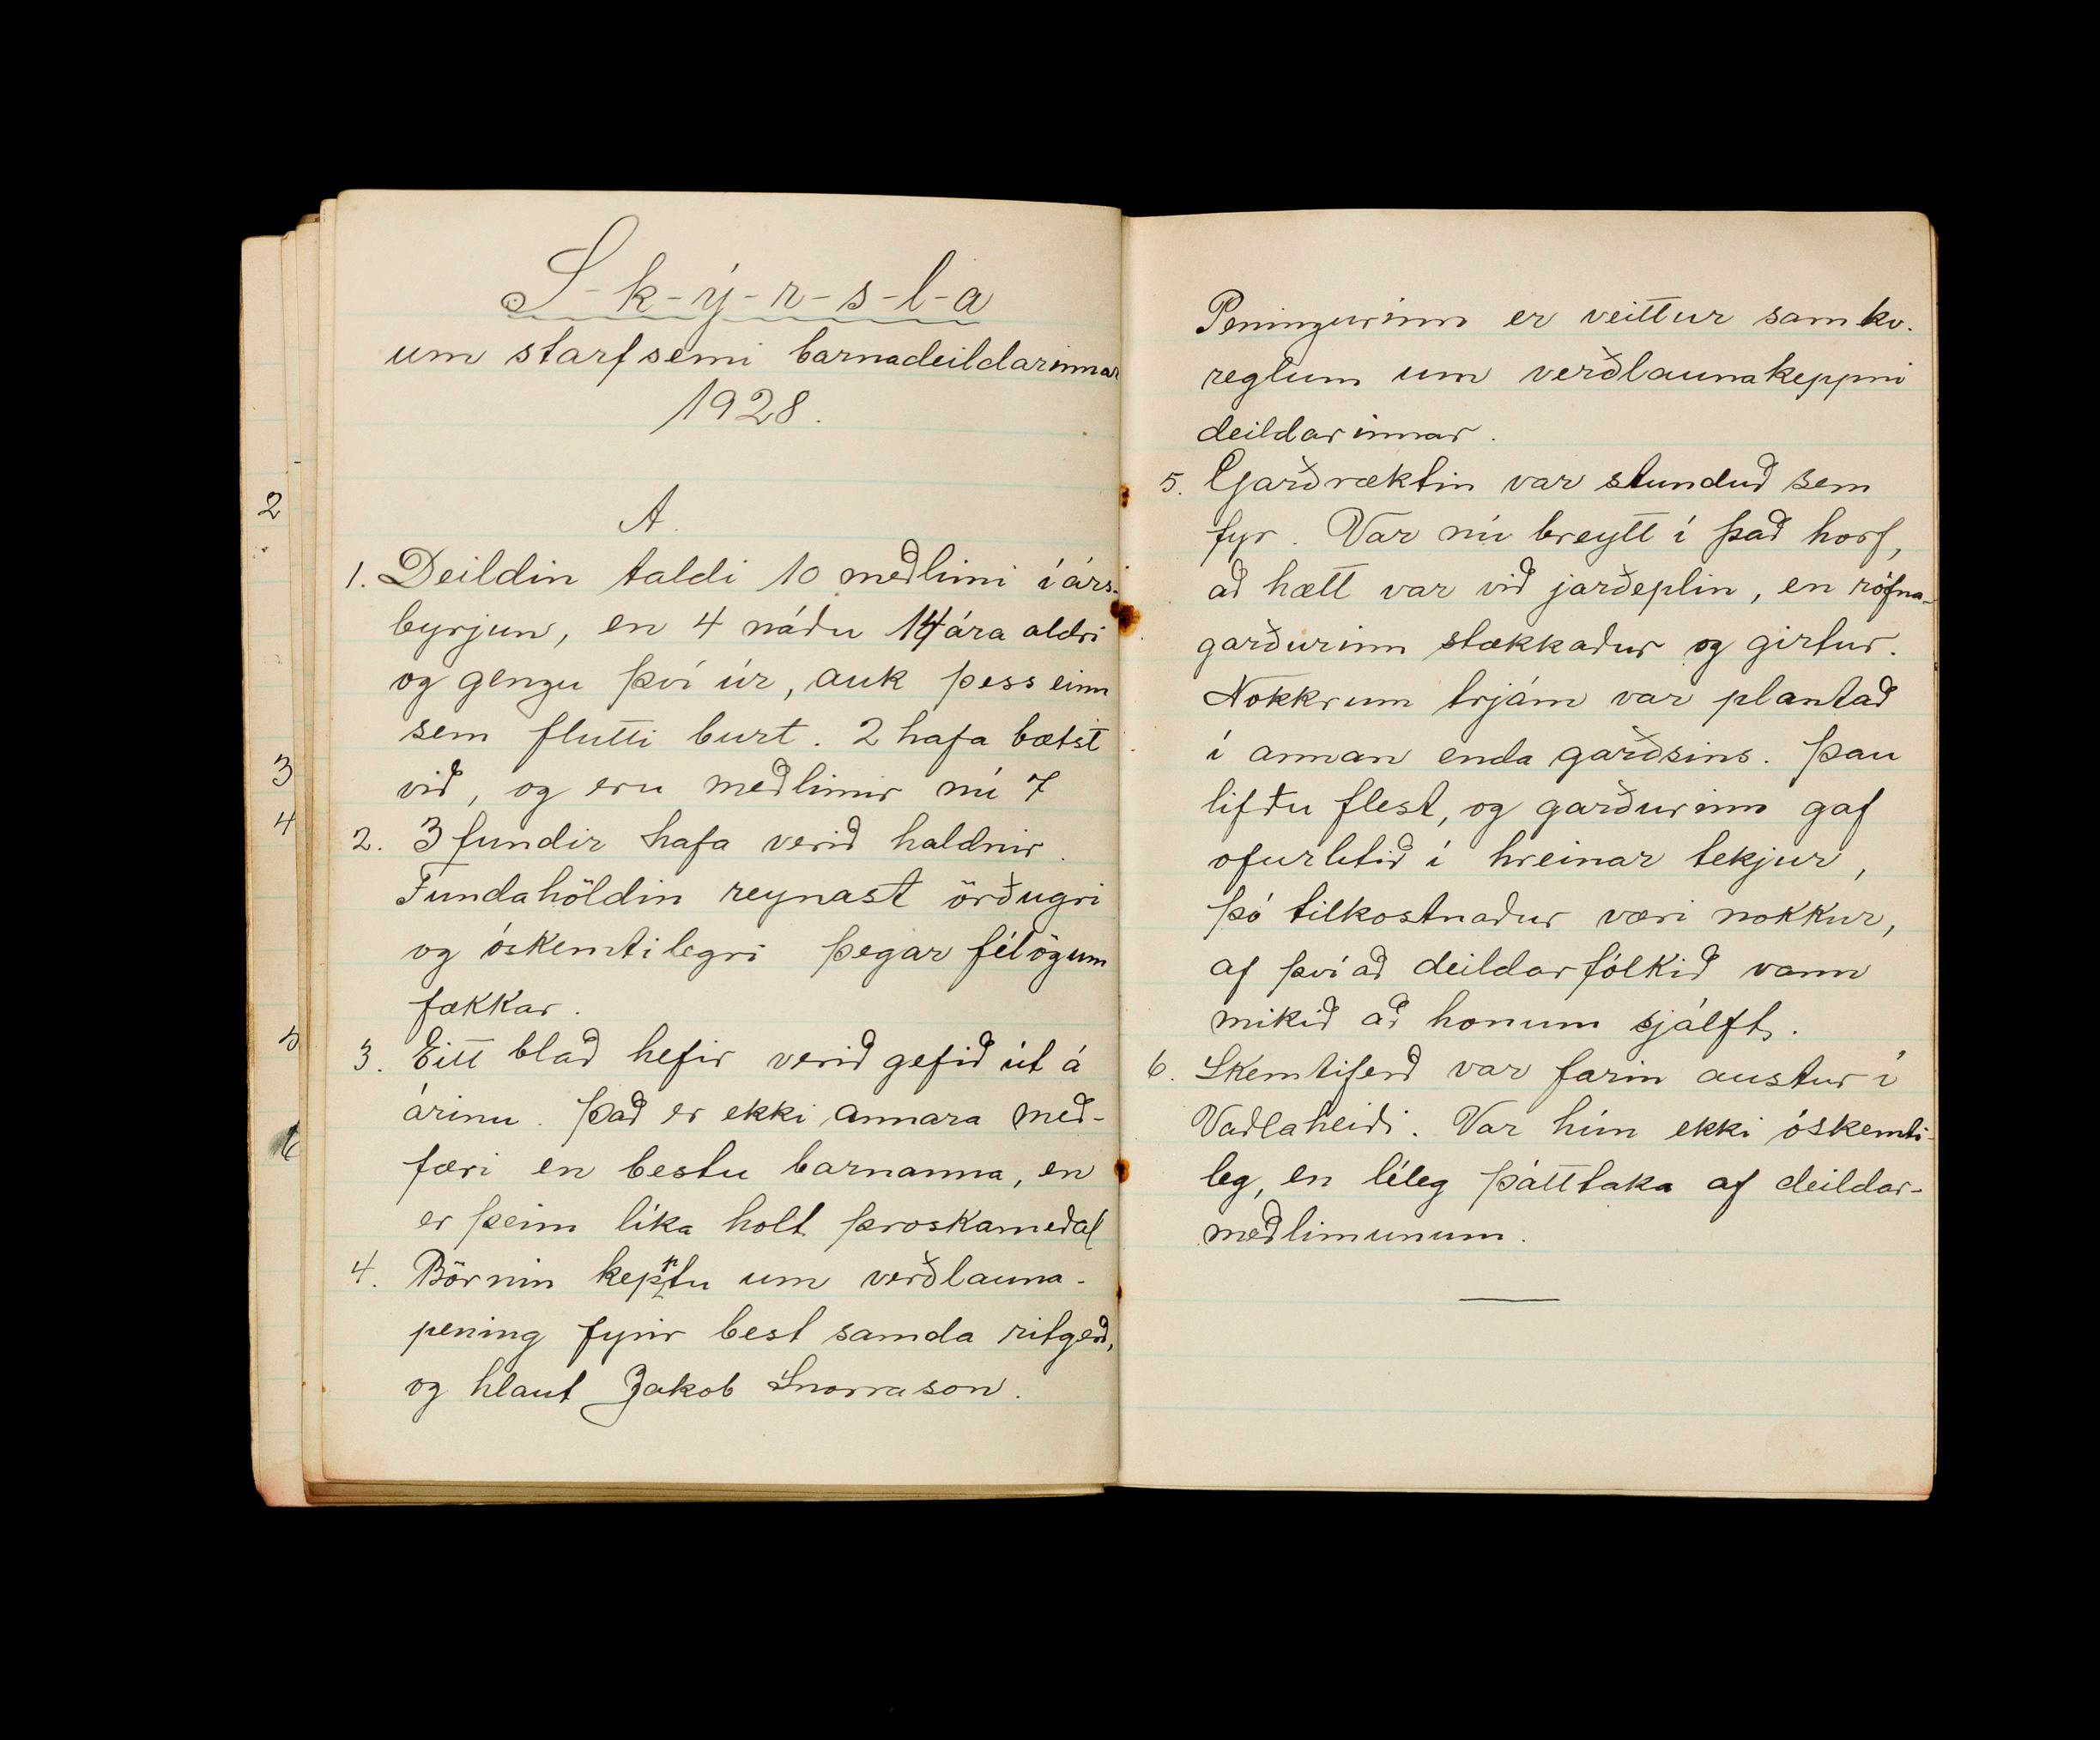 S-k-ý-r-s-l-a
um starfsemi barnadeildarinnar
1928.
A.
1. Deildin taldi 10 meðlimi í árs-
byrjun, en 4 náðu 14 ára aldri
og gengu því úr, auk þess einn
sem flutti burt. 2 hafa bætst
við, og eru meðlimir nú 7
2. 3 fundir hafa verið haldnir.
Fundahöldin reynast örðugri
og óskemtilegri þegar félögum
fækkar.
3. Eitt blað hefir verið gefið út á
árinu. Það er ekki annara með-
færi en bestu barnanna, en
er þeim líka holt þroskameðal
4. Börnin keptu um verðlauna-
pening fyrir best samda ritgerð,
og hlaut Jakob Snorrason.
Peningurinn er veittur samkv.
reglum um verðlaunakeppni
deildarinnar.
5. Garðræktin var stunduð sem
fyr. Var nú breytt í það horf,
að hætt var við jarðeplin, en rófna-
garðurinn stækkaður og girtur.
Nokkrum trjám var plantað
í annan enda garðsins. Þau
lifðu flest, og garðurinn gaf
ofurlitið í hreinar tekjur,
þó tilkostnaður væri nokkur,
af því að deildarfólkið vann
mikið að honum sjálft.
6. Skemtiferð var farin austur í
Vaðlaheiði. Var hún ekki óskemti-
leg, en léleg þátttaka af deildar-
meðlimunum.
2
3
4
5
6